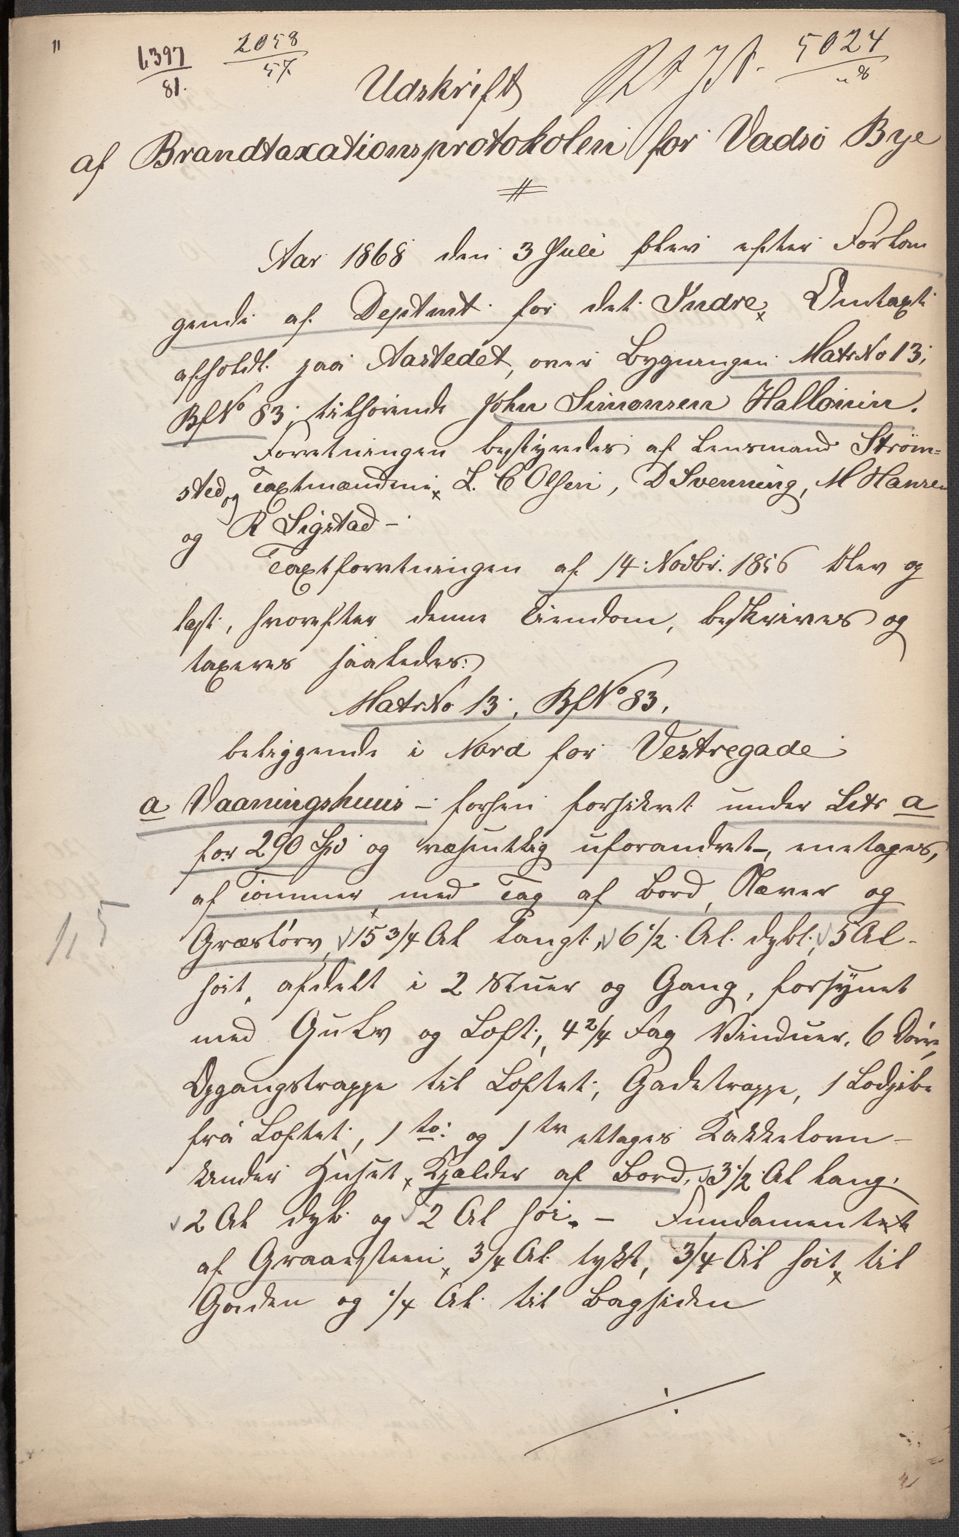 11
1397
81.
2058
57.
5024
68
Udskrift
af Brandtaxationsprotokolen for Vadsö Bye
Aar 1868 den 3 Juli blev efter Forlan
gende af Deptmt for det Indre, Omtaxt
afholdt paa Aastedet, over Bygningen MatrNo 13,
BfNo 83, tilhörende John Simonsen Hallonin.
Forretningen bestyredes af Lensmand Ström=
sted og Taxtmændene L. C Olsen, D Svenning, M Hansen
og R Sigstad –
Taxtforretningen af 14 Novbr. 1856 blev op
læst, hvorefter denne Eiendom, beskrives og
taxeres saaledes:
MatrNo 13, BfNo 83.
beliggende i Nord for Vestregade
a Vaaningshuus – forhen forsikret under Litr a
for 290 Spd og væsentlig uforandret –, enetages,
af Tømmer, med Tag af Bord, Næver og
Græstörv, 15 3/4 Al langt, 6 1/2 Al. dybt, 5 Al
höit, afdelt i 2 Stuer og Gang, forsynet
med Gulv og Loft, 4 2/4 Fag Vinduer, 6 Döre,
Opgangstrappe til Loftet, Gadetrappe, 1
fra Loftet, 1 to: og 1 tre etages Kakkelovn –
Under Huset, Kjælder af Bord, 3 1/2 Al lang,
2 Al dyb og 2 Al höi. – Fundamentet
af Graasteen, 3/4 Al tykt, 3/4 Al höit, til
Gaden og 1/4 Al. til Bagsiden